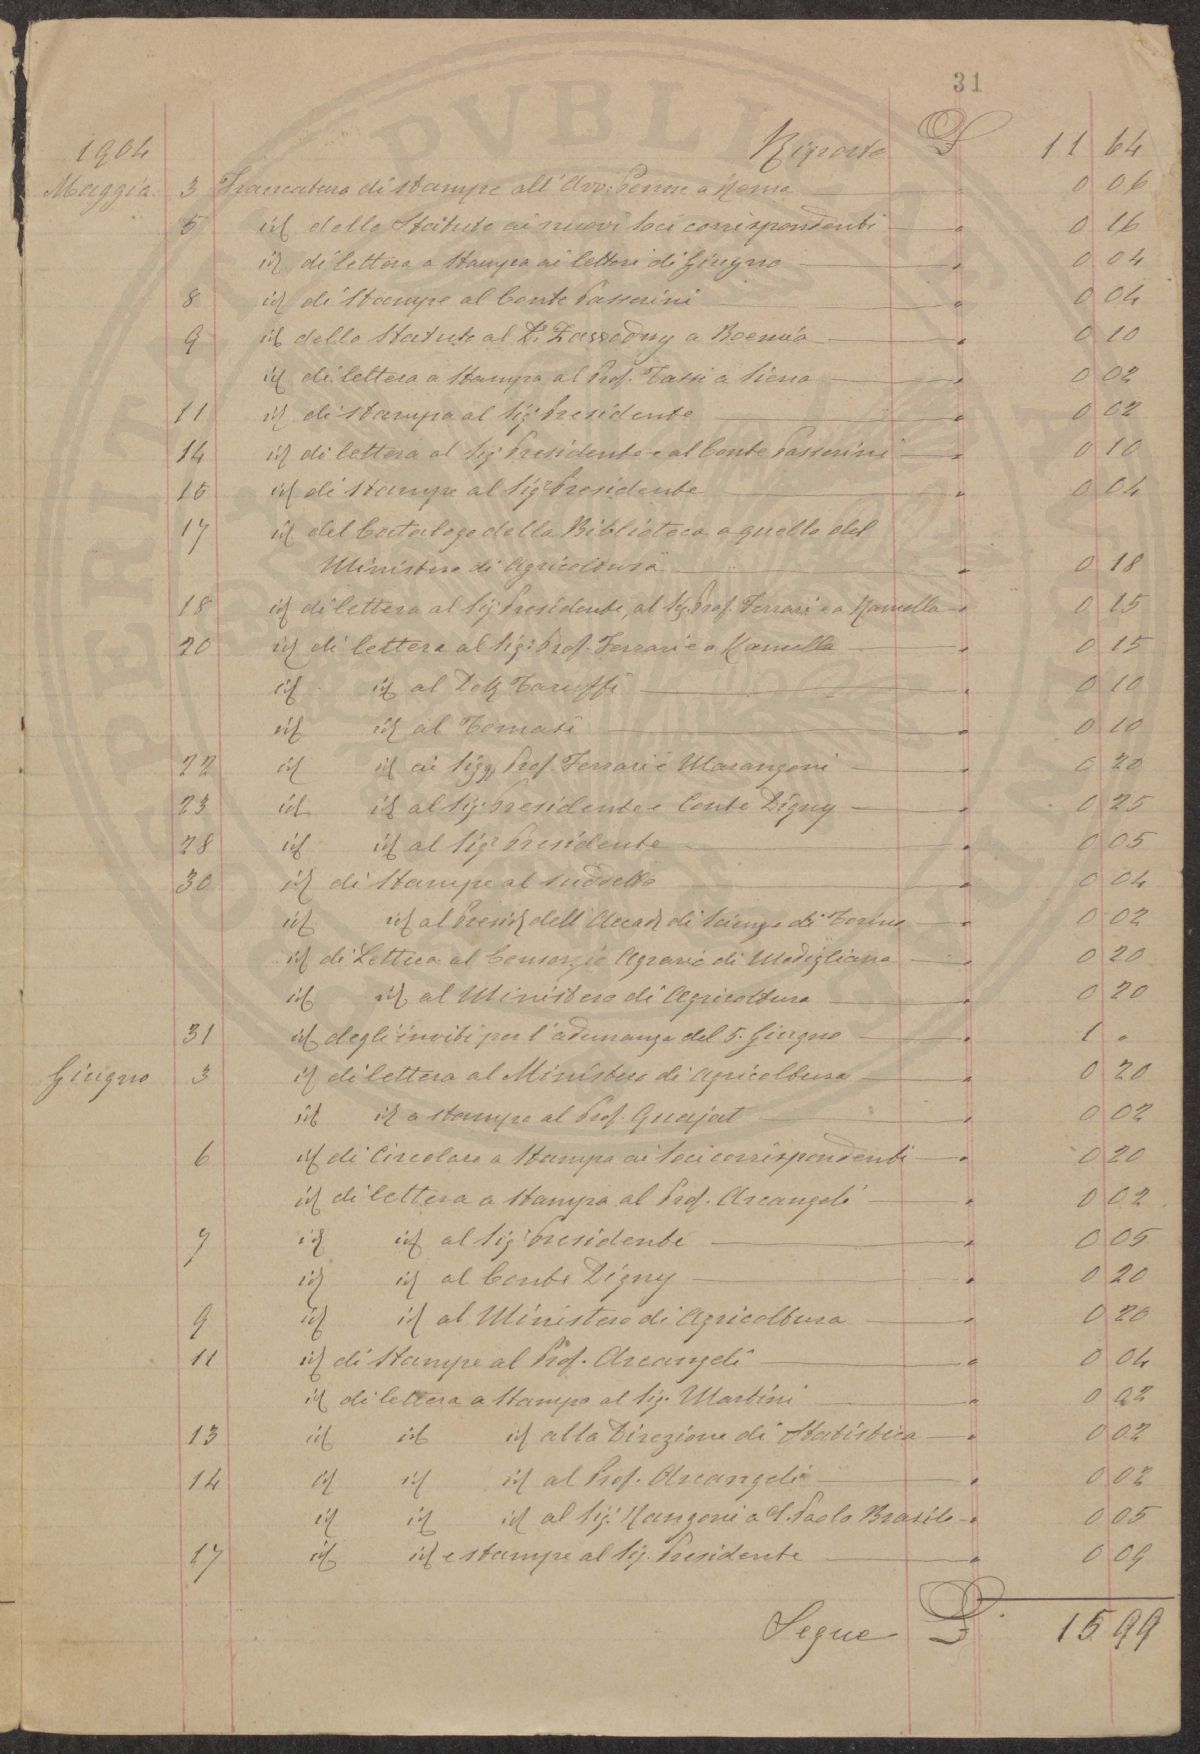 31
1904 Riporto £ 11 64
Maggio 3 Francatura di stampe all'Avv. Penne a Roma " 0 06
5 id dello Statuto ai nuovi soci corrispondenti " 0 16
id di lettera a stampa ai lettori di Giugno " 0 04
8 id di stampe al Conte Passerini " 0 04
9 id dello Statuto al Dr. a Boemia " 0 10
id di lettera a stampa al Prof. Tassi a Siena " 0 02
11 id di stampa al Sigr Presidente " 0 02
14 id di lettera al Sigr Presidente e al Conte Passerini " 0 10
15 id di stampe al Sigr Presidente " 0 04
17 id del Catalogo della Biblioteca a quello del
Ministero di Agricoltura " 0 18
18 id di lettera al Sigr Presidente, al Sig. Prof. Ferrari e a Ramella " 0 15
20 id di lettera al Sigr Prof. Ferrari e a Ramella " 0 15
id id al Dott Taruffi " 0 10
id id al Tomasi " 0 10
22 id id ai Sigg. Prof. Ferrari e Marangoni " 0 20
23 id id al Sigr Presidente e Conte Digny " 0 25
28 id id al Sigr Presidente " 0 05
30 id di stampe al suddetto " 0 04
id id al Presid dell'Accad di Scienze di Torino " 0 02
id di Lettera al Consorzio Agrario di Modigliana " 0 20
id id al Ministero di Agricoltura " 0 20
31 id degli inviti per l'adunanza del 5. Giugno " 1 "
Giugno 3 id di lettera al Ministero di Agricoltura " 0 20
id id a stampa al Prof. Quajat " 0 02
6 id di Circolare a stampa ai Soci corrispondenti " 0 20
id di lettera a stampa al Prof. Arcangeli " 0 02
7 id id al Sigr Presidente " 0 05
id id al Conte Digny " 0 20
9 id id al Ministero di Agricoltura " 0 20
11 id di stampe al Prof. Arcangeli " 0 04
id di lettera a stampa al Sig. Martini " 0 02
13 id id id alla Direzione di Statistica " 0 02
14 id id id al Prof. Arcangeli " 0 02
id id id al Sig. Mangoni a S. Paolo Brasile " 0 05
17 id id e stampe al Sig. Presidente " 0 09
Segue £ 15 99